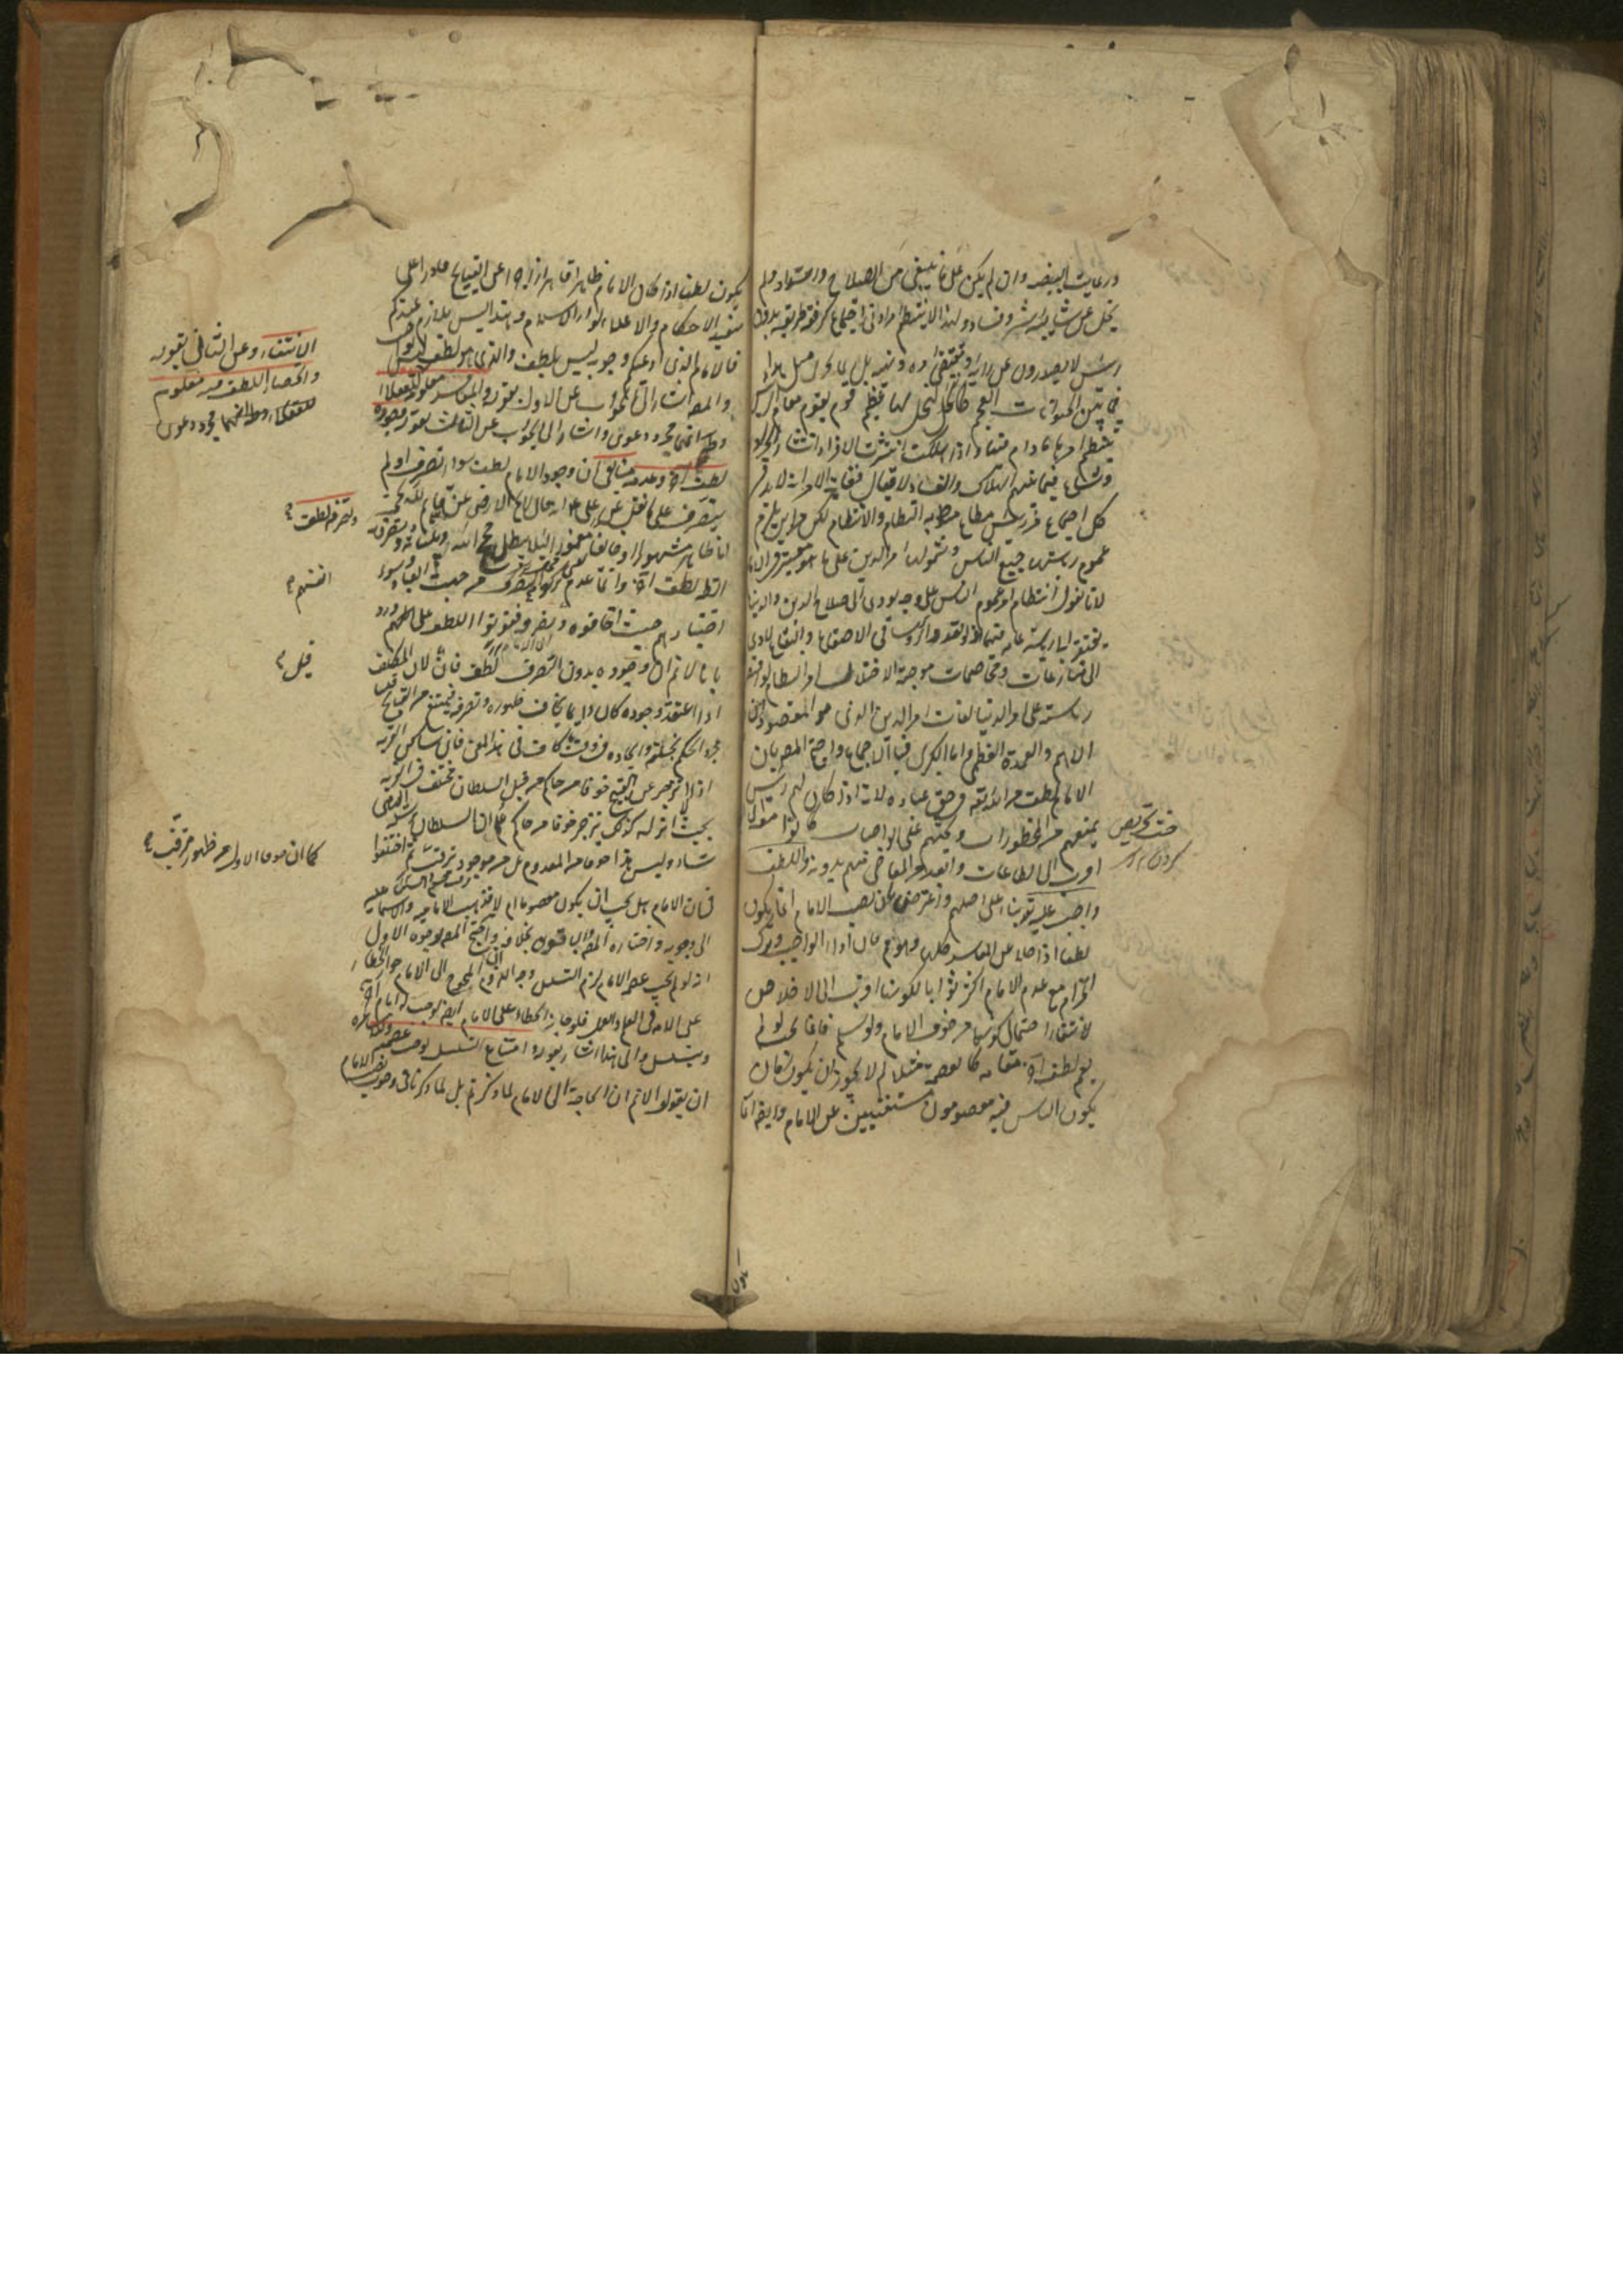 ورعايت البيضه وان لم يكن على ما ينبغي من الصلاح والسداد ولم
يخل عن شايبة شر وفساد ولهذا لا ينتظم امر ادنى اجتماع كرفقة طريق بدون
رئيس لا يصدرون عن رايه ومقتضى امره ونهيه بل ربما يجري مثل هذا
فيما بين الحيوانات العجم كالنحل لها عظيم يقوم مقام الرئيس
ينتظم امرها ما دام فيها واذا هلك انتشرت الافراد انتشار الجراد
وشاع فيما بينهم الهلاك والفساد لا يقال فغاية الامر انه لا بد في
كل اجتماع من رئيس مطاع منوط به النظام والانتظام لكن من اين يلزم
عموم رياسته جميع الناس وشمولها امر الدين على ما هو معتبر في الامام
لانا نقول انتظام امر عموم الناس على وجه يودي الى صلاح الدين والدنيا
يفتقر الى رياسة عامة فيهما اذ لو تعدد الرؤساء في الاصقاع والبقاع لادى
الى منازعات ومخاصمات موجبة لاختلال امر النظام ولو اقتصرت
رياسته على امر الدنيا لفات امر الدين الذي هو المقصود
الاهم والعمدة العظمى واما الكبرى فبالاجماع واحتج المصر بان
الامام لطف من الله تعالى في حق عباده لانه اذا كان لهم رئيس
يمنعهم من المحظورات ويحثهم على الواجبات كانوا معه
اقرب الى الطاعات وابعد عن المعاصي منهم بدونه واللطف
واجب عليه تعالى بناء على اصلهم واعترض بان نصب الامام انما يكون
لطفا اذا خلا عن المفاسد كلها وهو مم فان اداء الواجب وترك
الحرام مع عدم الامام اكثر ثوابا لكونهما اقرب الى الاخلاص
لانتفاء احتمال كونهما من خوف الامام ولو سلم فانما يجب لو لم
يقم لطف اخر مقامه كالعصمة مثلا لم لا يجوز ان يكون زمان
يكون الناس فيه معصومين مستغنين عن الامام وايضا انما
حث تحريص
كردن
يكون لطفا اذا كان الامام ظاهرا قاهرا زاجرا عن القبايح قادرا على
تنفيذ الاحكام واعلاء لواء الاسلام وهذا ليس بلازم عندكم
فالامام الذي ادعيتم وجوبه ليس بلطف والذي هو لطف ليس بواجب
والمصر اشار الى الجواب عن الاول بقوله والمفاسد معلومة
بانها مجرد دعوى واشار الى الجواب عن الثالث بقوله وجوده
لطف وتصرفه اخر وعدمه منا يعني ان وجود الامام لطف سواء تصرف او لم
يتصرف على ما نقل عن علي عليه السلام انه قال لا تخلو الارض عن قائم لله بحجة
اما ظاهرا مشهورا او خائفا مغمورا لئلا يبطل حجج الله وبيناته وتصرفه
الظاهر لطف اخر وانما عدم من جهة العباد وسوء
اختيارهم حيث اخافوه وتركوا نصرته ففوتوا اللطف على انفسهم ورد
بانا لا نم ان وجوده بدون التصرف لطف فان قيل لان المكلف
اذا اعتقد وجوده كان دايما يخاف ظهوره وتصرفه فيمتنع من القبايح
مجرد الحكم بخلقه وايجاده في وقت ما كاف في هذا المعنى فان ساكن القرية
اذا انزجر عن القبيح خوفا من حاكم من قبل السلطان مختف في القرية
بحيث لا اثر له كذلك ينزجر خوفا من حاكم علم ان السلطان يرسله اليها متى
شاء وليس هذا خوفا من المعدوم بل من موجود مترقب ثم اختلفوا
في ان الامام هل يجب ان يكون معصوما ام لا فذهبت الامامية والاسماعيلية
الى وجوبه واختاره المصر والباقون بخلافه واحتج المصر بوجوه الاول
انه لو لم يجب عصمة الامام لزم التسلسل وجه اللزوم ان المحوج الى الامام جواز الخطاء
على الامة في العلم والعمل فلو جاز الخطاء على الامام ايضا لوجب له امام اخر
ويتسلسل والى هذا اشار بقوله وامتناع التسلسل يوجب عصمته
ان يقولوا لا نم ان الحاجة الى الامام لما ذكرتم بل لما ذكرنا في وجوب نصب الامام
الانتفاء وعن الثاني بقوله
وانحصار اللطف فيه معلوم
للعقلاء واما انهما مجرد دعوى
وتصرفه لطف
انفسهم
قيل
كما ان خوف الاول من ظهور مترقب
يكون